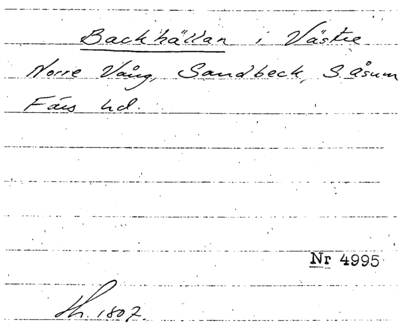 Backhällan i Västre
Norre Vång, Sandbeck, S åsum
Färs hd.
Nr 4995
Sh. 1807